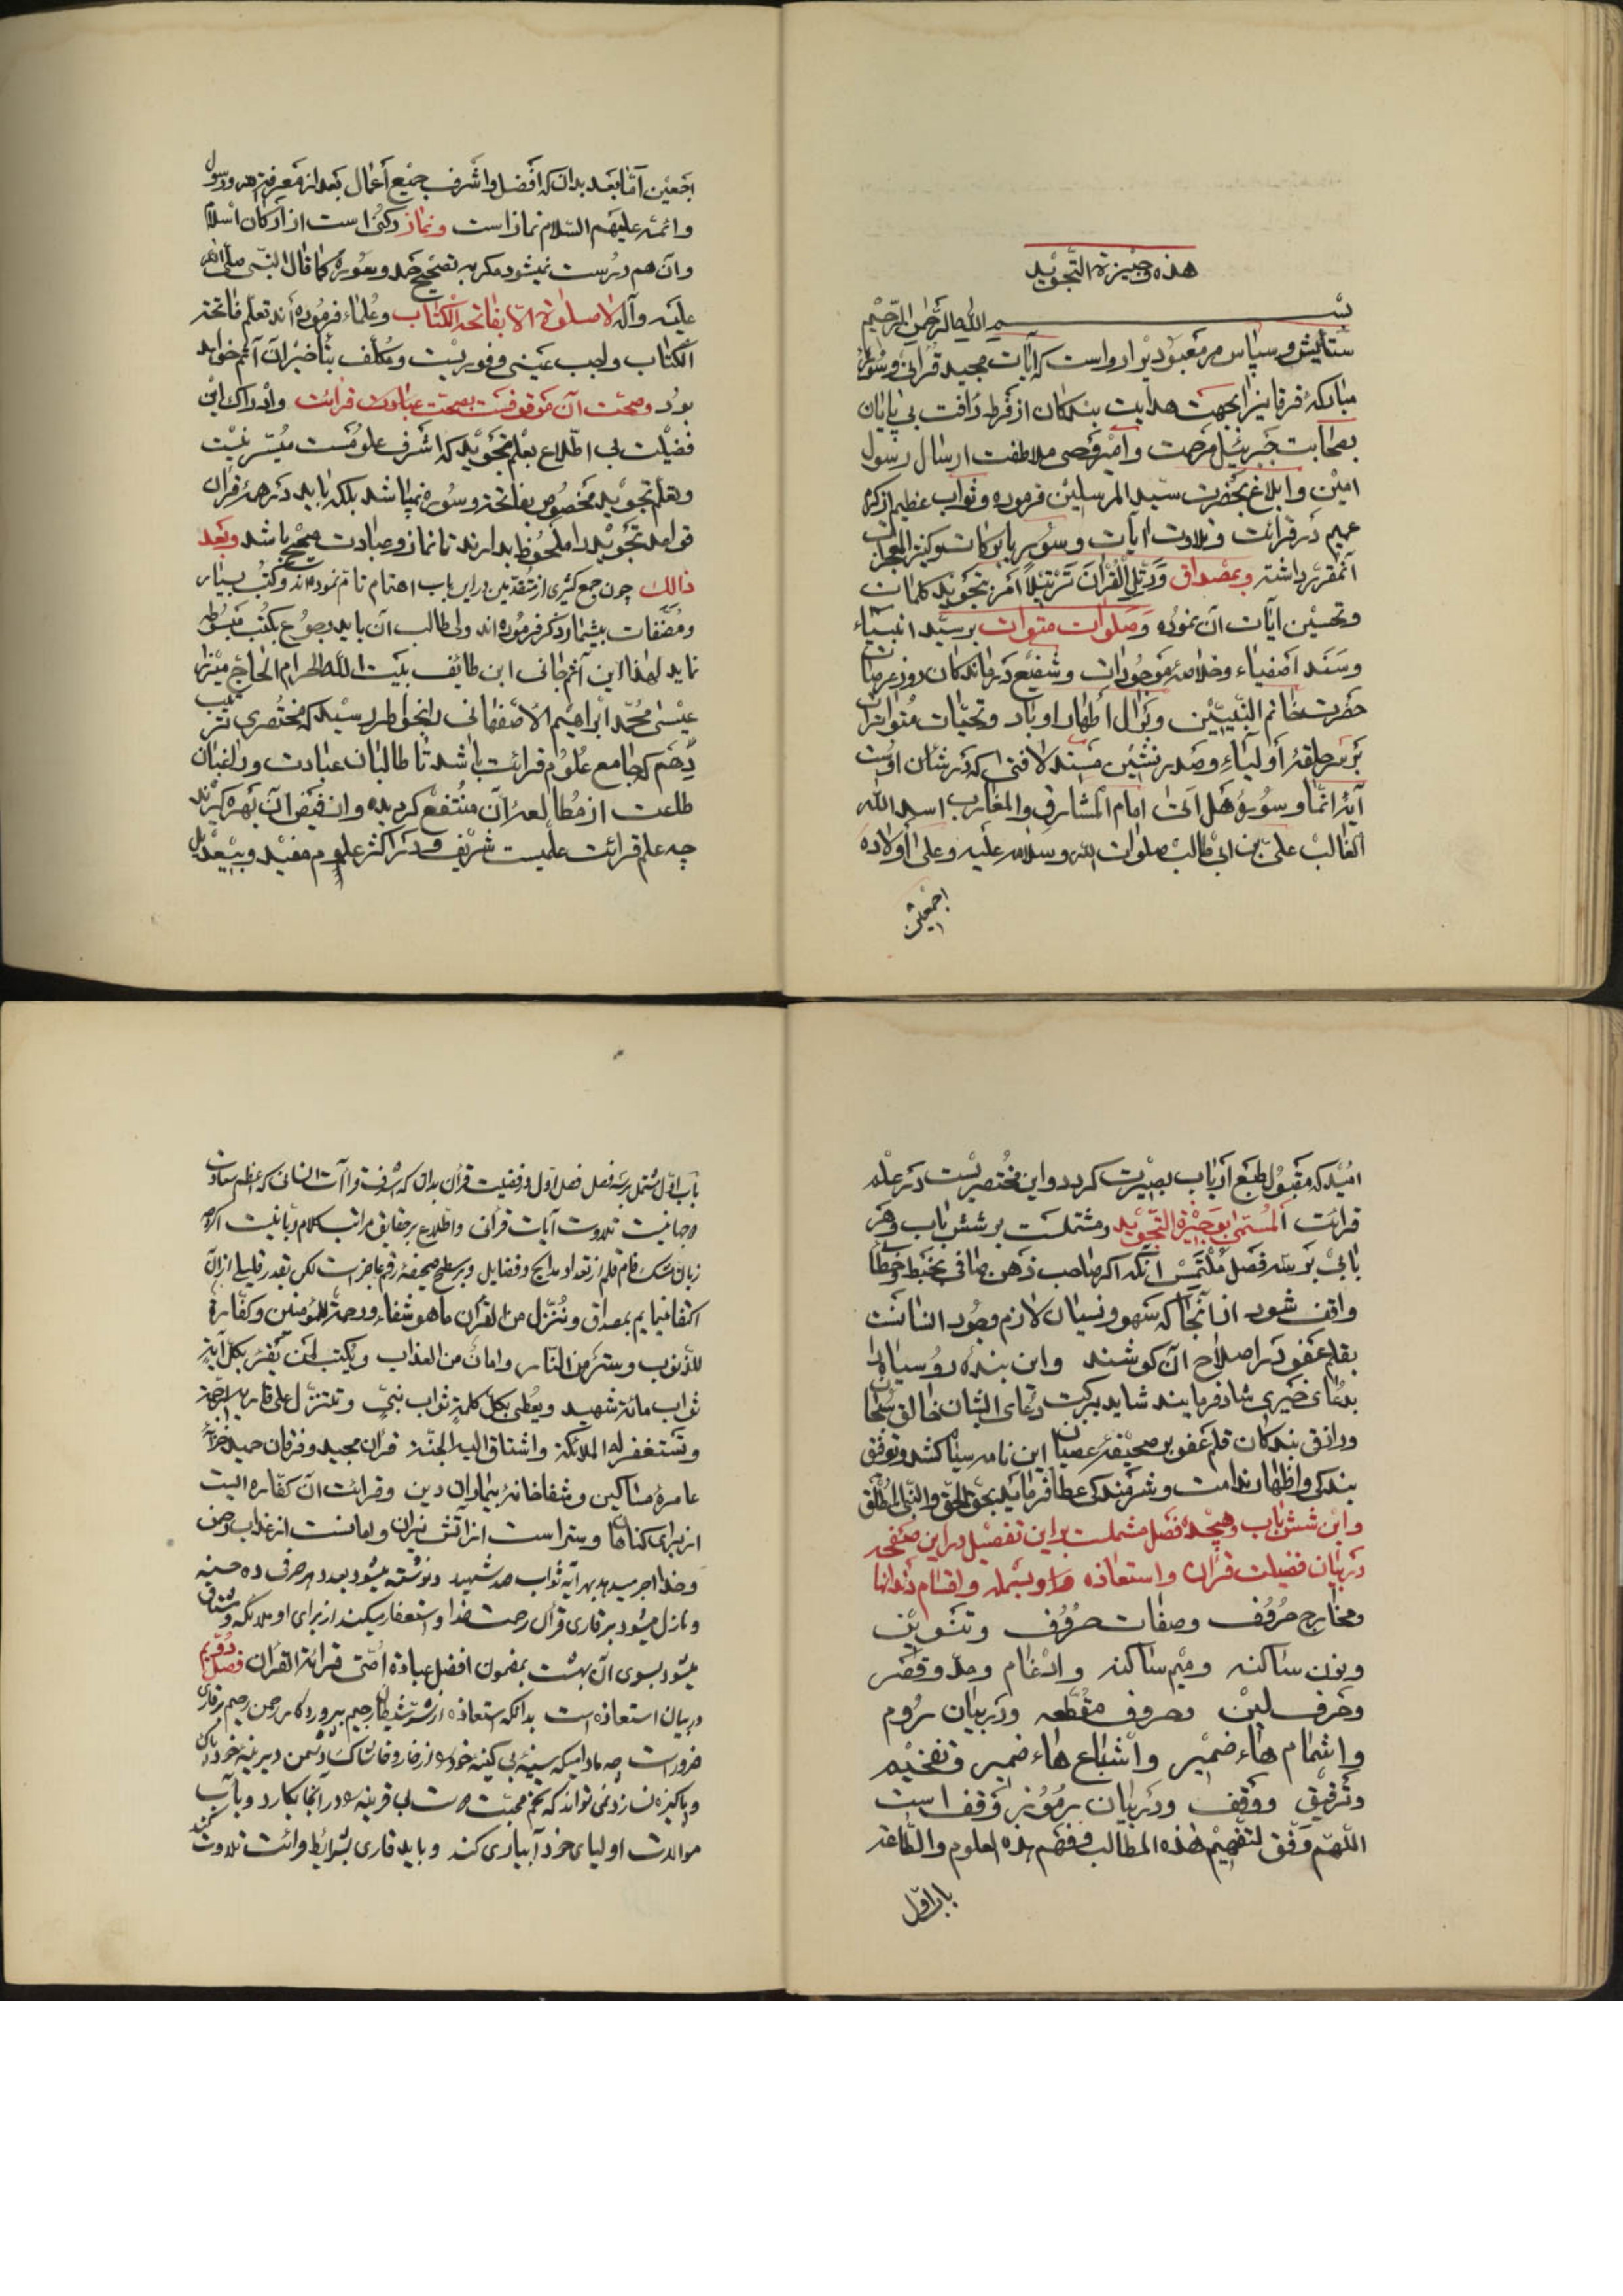 هذه وجيزة التجويد
بسم الله الرحمن الرحيم
ستايش و سپاس مر معبوديرا رواست كه آيات مجيد قرآنى و سور
مباركهٔ فرقانيرا بجهت هدايت بندگان از فرط رأفت بى پايان
بصحابت جبرئيل مرحمت و امير وحى ملاطفت ارسال رسول
امين و ابلاغ بحضرت سيد المرسلين فرموده و ثواب عظيم از كرم
عميم در قرائت و تلاوت ايات و سور
مقرر داشته و بمصداق وَرَتِّلِ الْقُرْآنَ تَرْتيلاً امر بتجويد كلمات
و تحسين آيات آن نموده و صلوات متوات بر سيد انبياء
و سند اصفياء و خلاصهٔ موجودات و شفيع درماندكان روز عرصات
حضرت خاتم النبيين و بر آل اطهار او باد و تحيات متواترات
بر سر حلقهٔ اولياء و صدر نشين مسند لا فتى كه در شان اوست
آيهٔ انما و سورهٔ هل اتى امام المشارق والمغارب اسد الله
الغالب على بن ابى طالب صلوات الله و سلامه عليه و على اولاده
اجمعين
اجمعين اما بعد بدان كه افضل و اشرف جميع اعمال بعد از معرفت خدا و رسول
و ائمه عليهم السلام نماز است و نماز ركنى است از اركان اسلام
و آن هم درست نميشود مكر به تصحيح حمد و سوره كما قال النبى صلى الله
عليه و آله لا صلوة الا بفاتحة الكتاب و علماء فرموده اند تعلم فاتحة
الكتاب واجب عينى و فوريست و مكلف بتاخير آن آثم خواهد
بود و صحت آن موقوفست بصحت عبادت قرائت و ادراك اين
فضيلت بى اطلاع بعلم تجويد كه اشرف علومست ميسر نيست
و علم تجويد مخصوص بفاتحة و سوره نميباشد بلكه بايد در همهٔ قرآن
قواعد تجويد را ملحوظ بدارند تا نماز و عبادت صحيح باشد و بعد
ذالك چون جمع كثيرى از متقدمين در اين باب اهتمام تام نموده اند و كتب بسيار
و مصنفات بيشمار ذكر فرموده اند ولى طالب آن بايد رجوع بكتب مبسوطه
نمايد لهذا اين آثم جانى ابن طائف بيت الله الحرام الحاج ميرزا
عيسى محمد ابراهيم الاصفهانى را بخواطر رسيد كه مختصرى ترتيب
دهم كه جامع علوم قرائت باشد تا طالبان عبادت و راغبان
طاعت از مطالعهٔ آن منتفع كرديده و از فيض آن بهره كيرند
چه علم قرائت علميست شريف و در اكثر علوم مفيد و بيعديل
اميد كه مقبول طبع ارباب بصيرت كردد و اين مختصريست در علم
قرائت المسمى بوجيزة التجويد و مشتملست بر شش باب و هر
بابى بر سه فصل ملتمس آنكه اكر صاحب ذهن صافى بخبط و خطائى
واقف شود از آنجا كه سهو و نسيان لازم وجود انسانست
بقلم عفو در اصلاح آن كوشند و اين بنده روسياه را
بدعاى خيرى شاد فرمايند شايد ببركت دعاى ايشان خالق سبحان
و رازق بندكان قلم عفو بر صحيفهٔ عصيان اين نامه سياه كشد و توفيق
بندكى و اظهار ندامت و شرمندكى عطا فرمايد بحق الحق و النبى المطلق
و اين شش باب و هيجده فصل مشتملست بر اين تفصيل در اين صفحه
در بيان فضيلت قرآن و استعاذه و بسمله و اقسام دندانها
و مخارج حروف و صفات حروف و تنوين
و نون ساكنه و ميم ساكنه و ادغام و مد و قصر
و حرف لين و حروف مقطعه و در بيان روم
و اشمام هاء ضمير و اشباع هاء ضمير و تفخيم
و ترقيق و وقف و در بيان رموز وقف است
اللهم وفق لتفهيم هذه المطالب و فهم هذه العلوم و الطاعة
باب اول
باب اول مشتمل بر سه فصل فصل اول در فضيلت قرآن بدان كه اشرف قراآت انسانى كه اعظم سعادت
و جهانيست تلاوت آيات قرآنى و اطلاع بر حقايق مراتب كلام ربانيست اكرچه
زبان قلم از تعداد مدايح و فضايل و بر سطح صحيفه رقم عاجز است لكن بقدر قليلى از آن
اكتفا نمايم بمصداق و ننزل من القرآن ما هو شفاء و رحمة للمؤمنين و كفارة
للذنوب و ستر من النار و امان من العذاب و يكتب لمن يقرء بكل آية
ثواب مائة شهيد و يعطى بكل كلمة ثواب نبى و تتنزل على قاريه الرحمة
و تستغفر له الملائكة و اشتاق اليه الجنة قرآن مجيد و فرقان حميد
عامرهٔ مساكين و شفاخانهٔ بيماران دين و قرائت آن كفاره ايست
از براى كناهان و ستر است از آتش نيران و امانست از عذاب
و خدا اجر ميدهد بهر آيه ثواب صد شهيد و نوشته ميشود بعدد هر حرفى ده حسنه
و نازل ميشود بر قارى قرآن رحمت خدا و استغفار ميكنند از براى او ملائكه و مشتاق
ميشود بسوى آن بهشت بمضمون افضل عبادة امتى قرائة القرآن فصل دويم
در بيان استعاذه است بدانكه استعاذه از شر شيطان رجيم بپروردكار رحمن رحيم بر قارى
ضرور است چه ماداميكه سينهٔ بى كينه خود را از خار و خاشاك دشمن ديرينه خود پاك
و پاكيزه نسازد نمى تواند كه تخم محبت بى قرينه را در آنجا بكارد و بآب
موالات اولياى خود آبيارى كند و بايد قارى بشرايط قرائت تلاوت كند